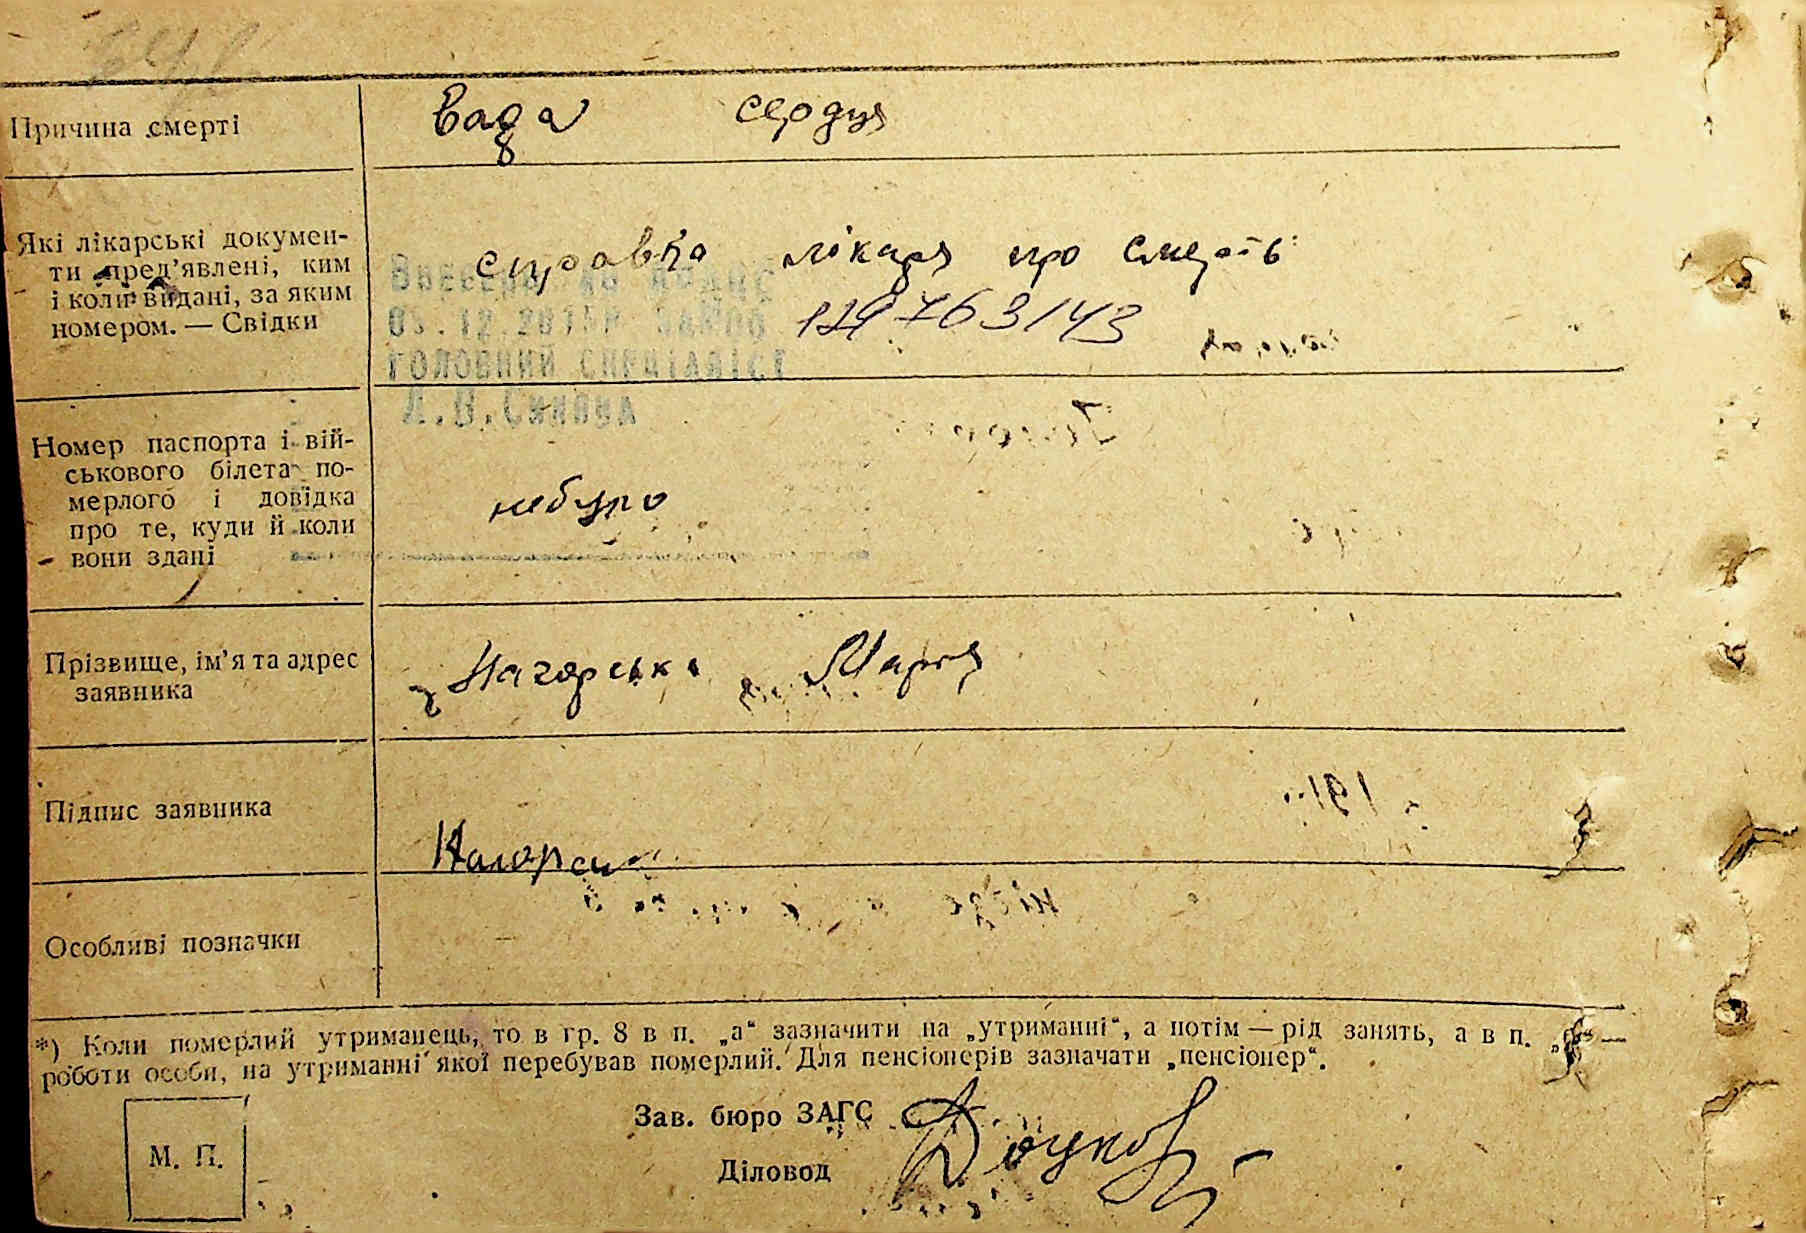 Причина смерті
Вада сердця
Які лікарські докумен-
ти пред'явлені, ким
і коли видані, за яким
номером. — Свідки
справка лікаря про смерть
179763/43
ГОЛОВНИЙ СПЕЦІАЛІСТ
Номер паспорта і вій-
ськового білета по-
мерлого і довідка
про те, куди й коли
вони здані
небуло
Прізвище, ім'я та адрес
заявника
Нагорська Марія
Підпис заявника
Особливі позначки
*) Коли померлий утриманець, то в гр. 8 в п. „а“ зазначити на „утриманні“, а потім — рід занять, а в п. „б“ —
роботи особи, на утриманні якої перебував померлий. Для пенсіонерів зазначати „пенсіонер“.
М. П.
Зав. бюро ЗАГС
Діловод